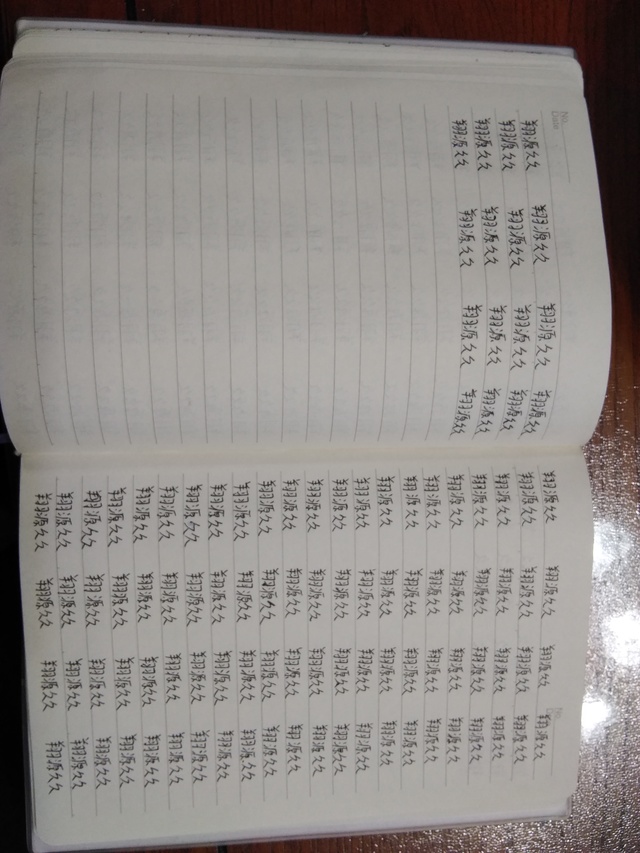 No.
Date
翔源久久 翔源久久 翔源久久 翔源久久
翔源久久 翔源久久 翔源久久 翔源久久
翔源久久 翔源久久 翔源久久 翔源久久
翔源久久 翔源久久 翔源久久 翔源久久
翔源久久 翔源久久 翔源久久 翔源久久
翔源久久 翔源久久 翔源久久 翔源久久
翔源久久 翔源久久 翔源久久 翔源久久
翔源久久 翔源久久 翔源久久 翔源久久
翔源久久 翔源久久 翔源久久 翔源久久
翔源久久 翔源久久 翔源久久 翔源久久
翔源久久 翔源久久 翔源久久 翔源久久
翔源久久 翔源久久 翔源久久 翔源久久
翔源久久 翔源久久 翔源久久 翔源久久
翔源久久 翔源久久 翔源久久 翔源久久
翔源久久 翔源久久 翔源久久 翔源久久
翔源久久 翔源久久 翔源久久 翔源久久
翔源久久 翔源久久 翔源久久 翔源久久
翔源久久 翔源久久 翔源久久 翔源久久
翔源久久 翔源久久 翔源久久 翔源久久
翔源久久 翔源久久 翔源久久 翔源久久
翔源久久 翔源久久 翔源久久 翔源久久
翔源久久 翔源久久 翔源久久 翔源久久
翔源久久 翔源久久 翔源久久 翔源久久
翔源久久 翔源久久 翔源久久 翔源久久
翔源久久 翔源久久 翔源久久 翔源久久
翔源久久 翔源久久 翔源久久 翔源久久